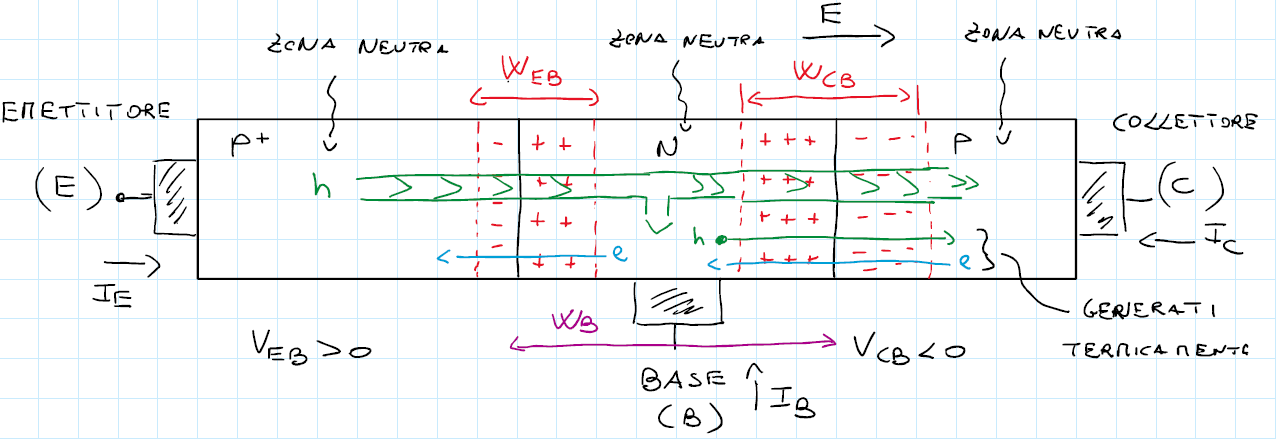 E
ZONA NEUTRA
ZONA NEUTRA
ZONA NEUTRA
W_EB
W_CB
EMETTITORE
COLLETTORE
P+
N
P
(E)
h
(C)
h
e
e
I_E
I_C
W_B
GENERATI
TERMICAMENTE
V_EB > 0
V_CB < 0
BASE
(B)
I_B